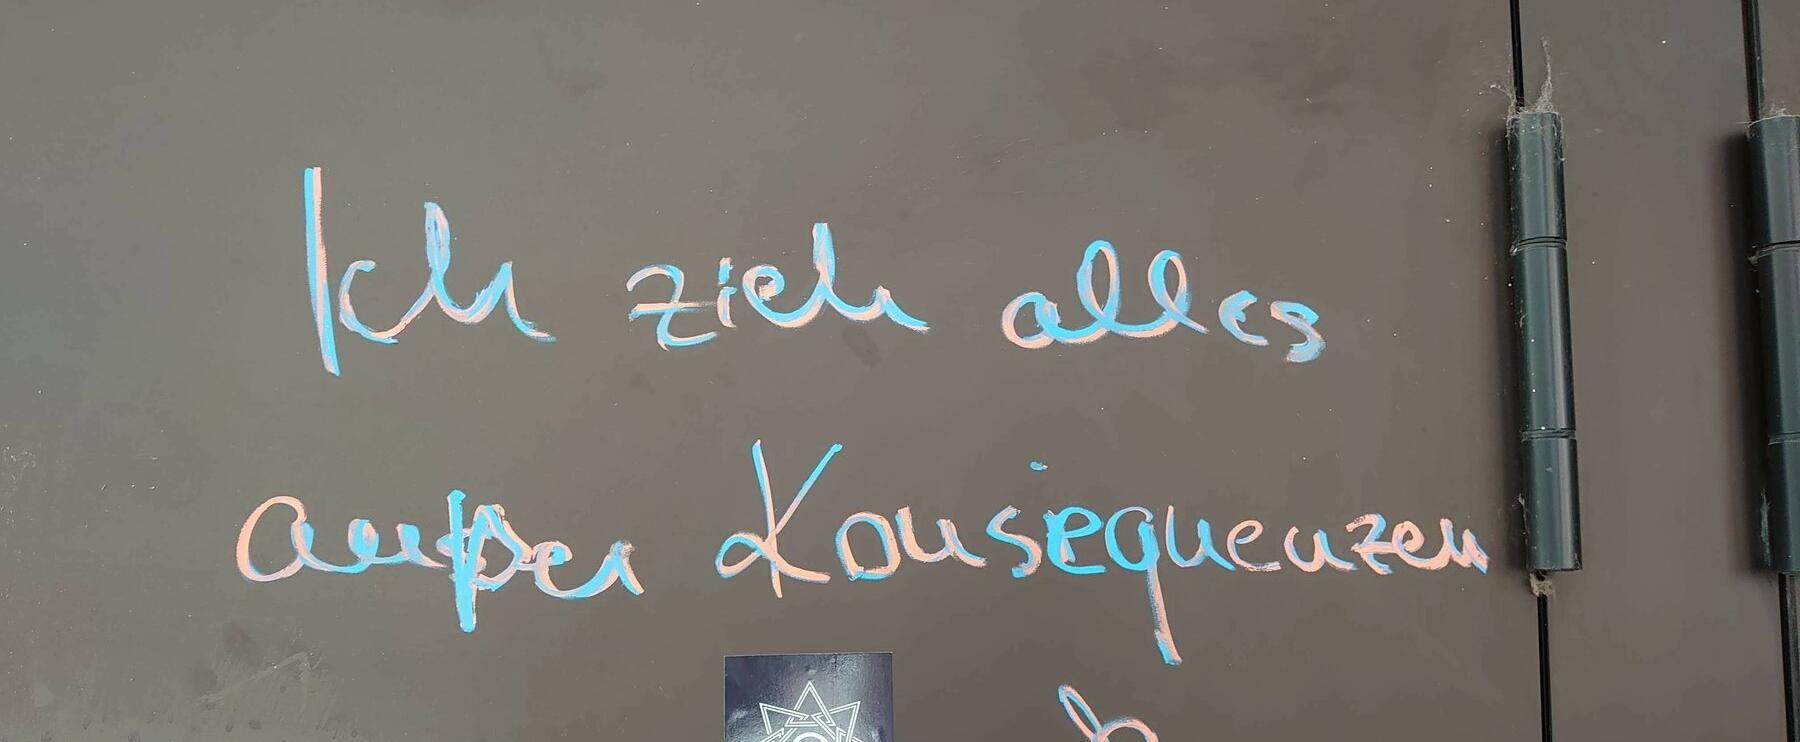 Ich zieh alles
außer Konsequenzen